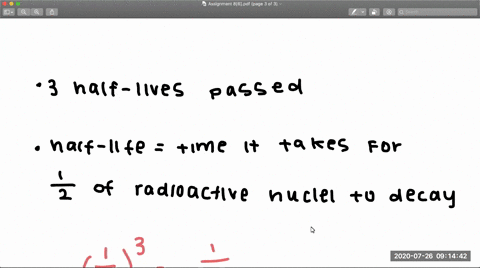 Assignment 8(8).pdf (page 3 of 3)
• 3 half-lives passed
• half-life = time it takes for
1/2 of radioactive nuclei to decay
(1/)³ 1/
2020-07-26 09:14:42